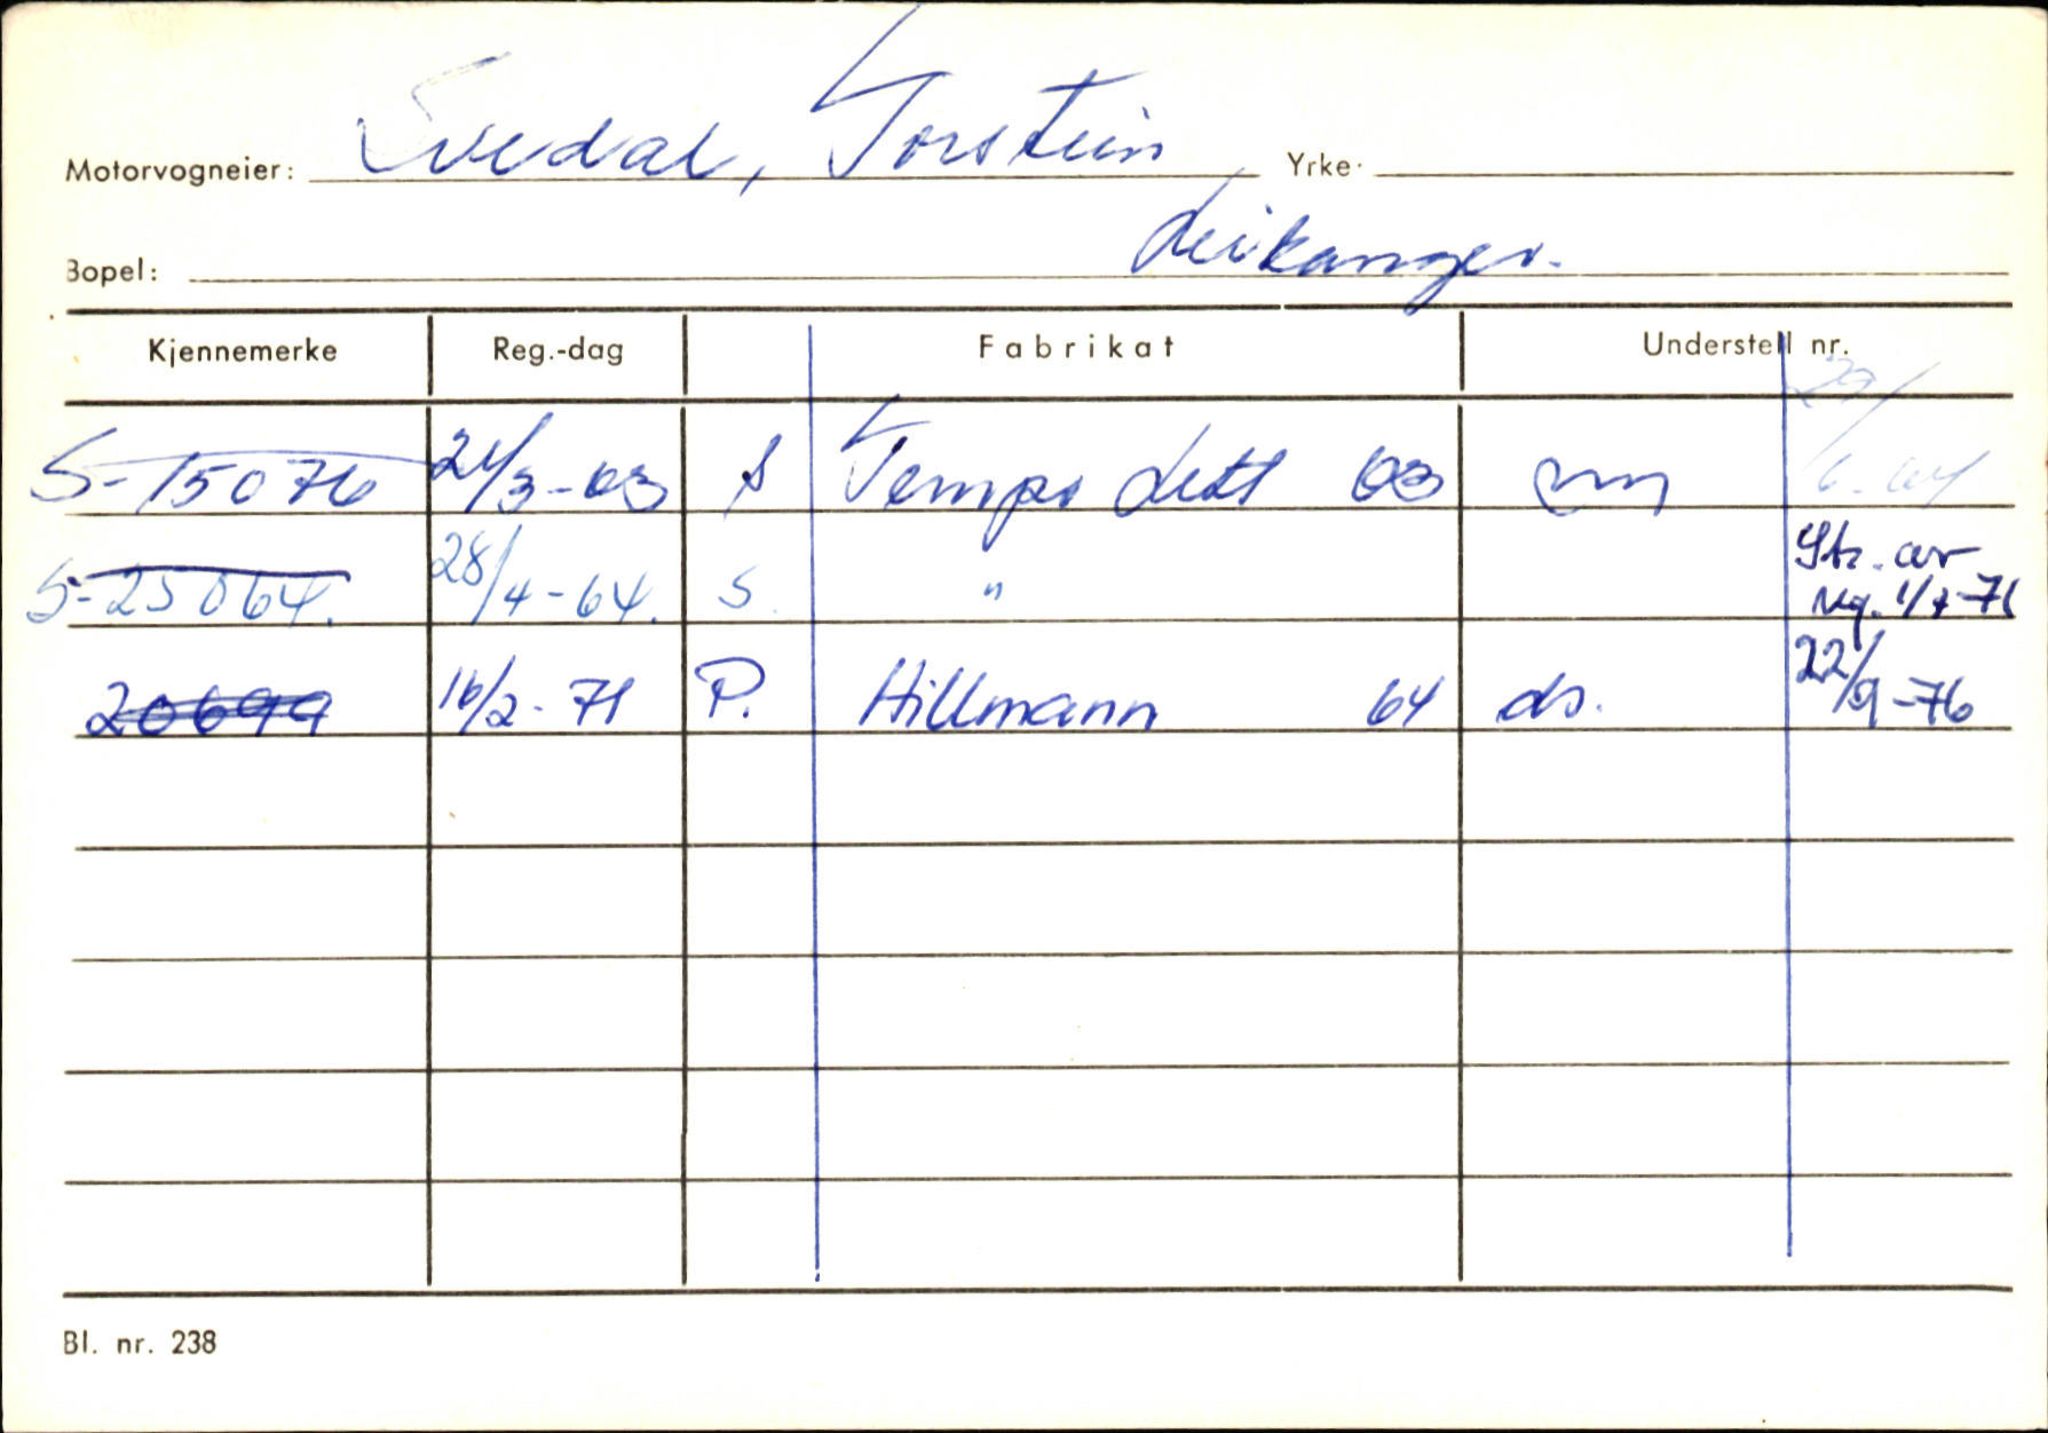 Motorvogneier: Svedal, Torstein Yrke.
Bopel: Leikanger.
Kjennemerke Reg.-dag Fabrikat Understell nr.
S-15076 21/3-63 S Tempo Lett 63
S-25064. 28/4-64. S. " Str. av reg. 1/7-71
20699 16/2-71 P. Hillmann 64 ds. 22/9-76
Bl. nr. 238